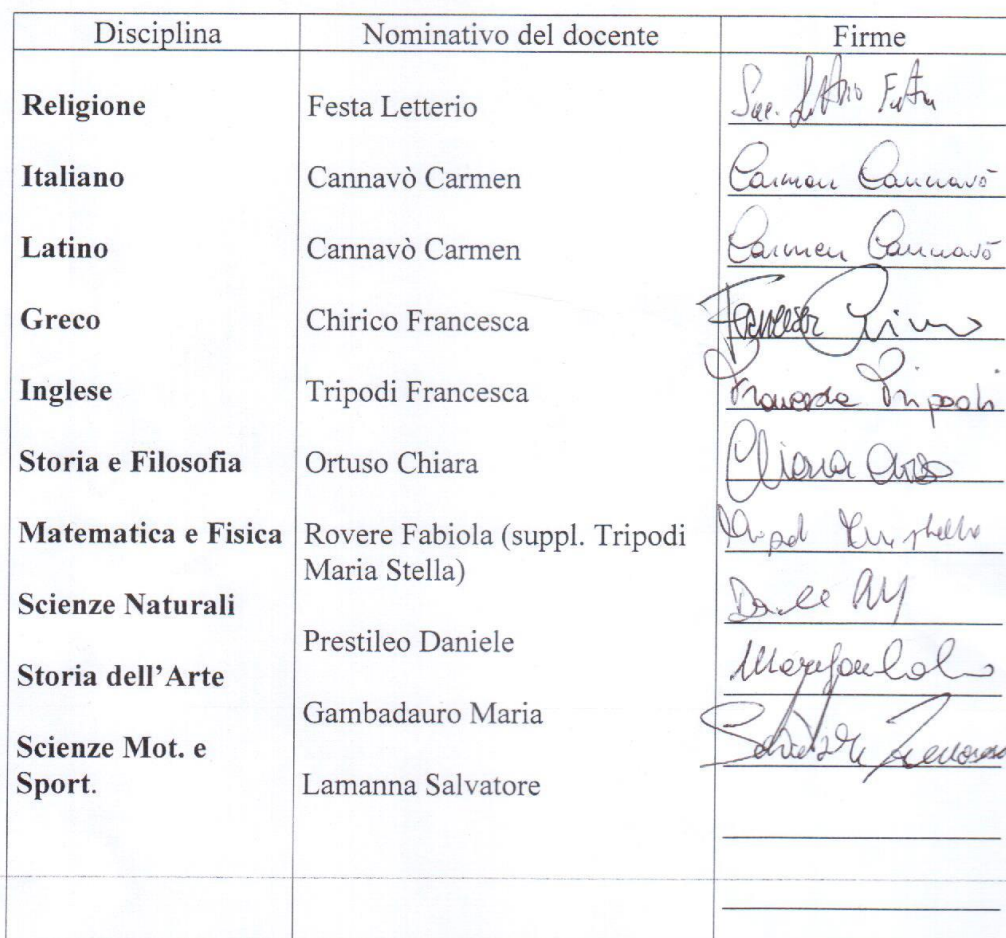 Disciplina Nominativo del docente Firme
Religione Festa Letterio Sac.
Italiano Cannavò Carmen Carmen Cannavò
Latino Cannavò Carmen Carmen Cannavò
Greco Chirico Francesca
Inglese Tripodi Francesca Francesca Tripodi
Storia e Filosofia Ortuso Chiara Chiara
Matematica e Fisica Rovere Fabiola (suppl. Tripodi
Maria Stella)
Scienze Naturali
Prestileo Daniele
Storia dell'Arte
Gambadauro Maria
Scienze Mot. e
Sport. Lamanna Salvatore Salvatore